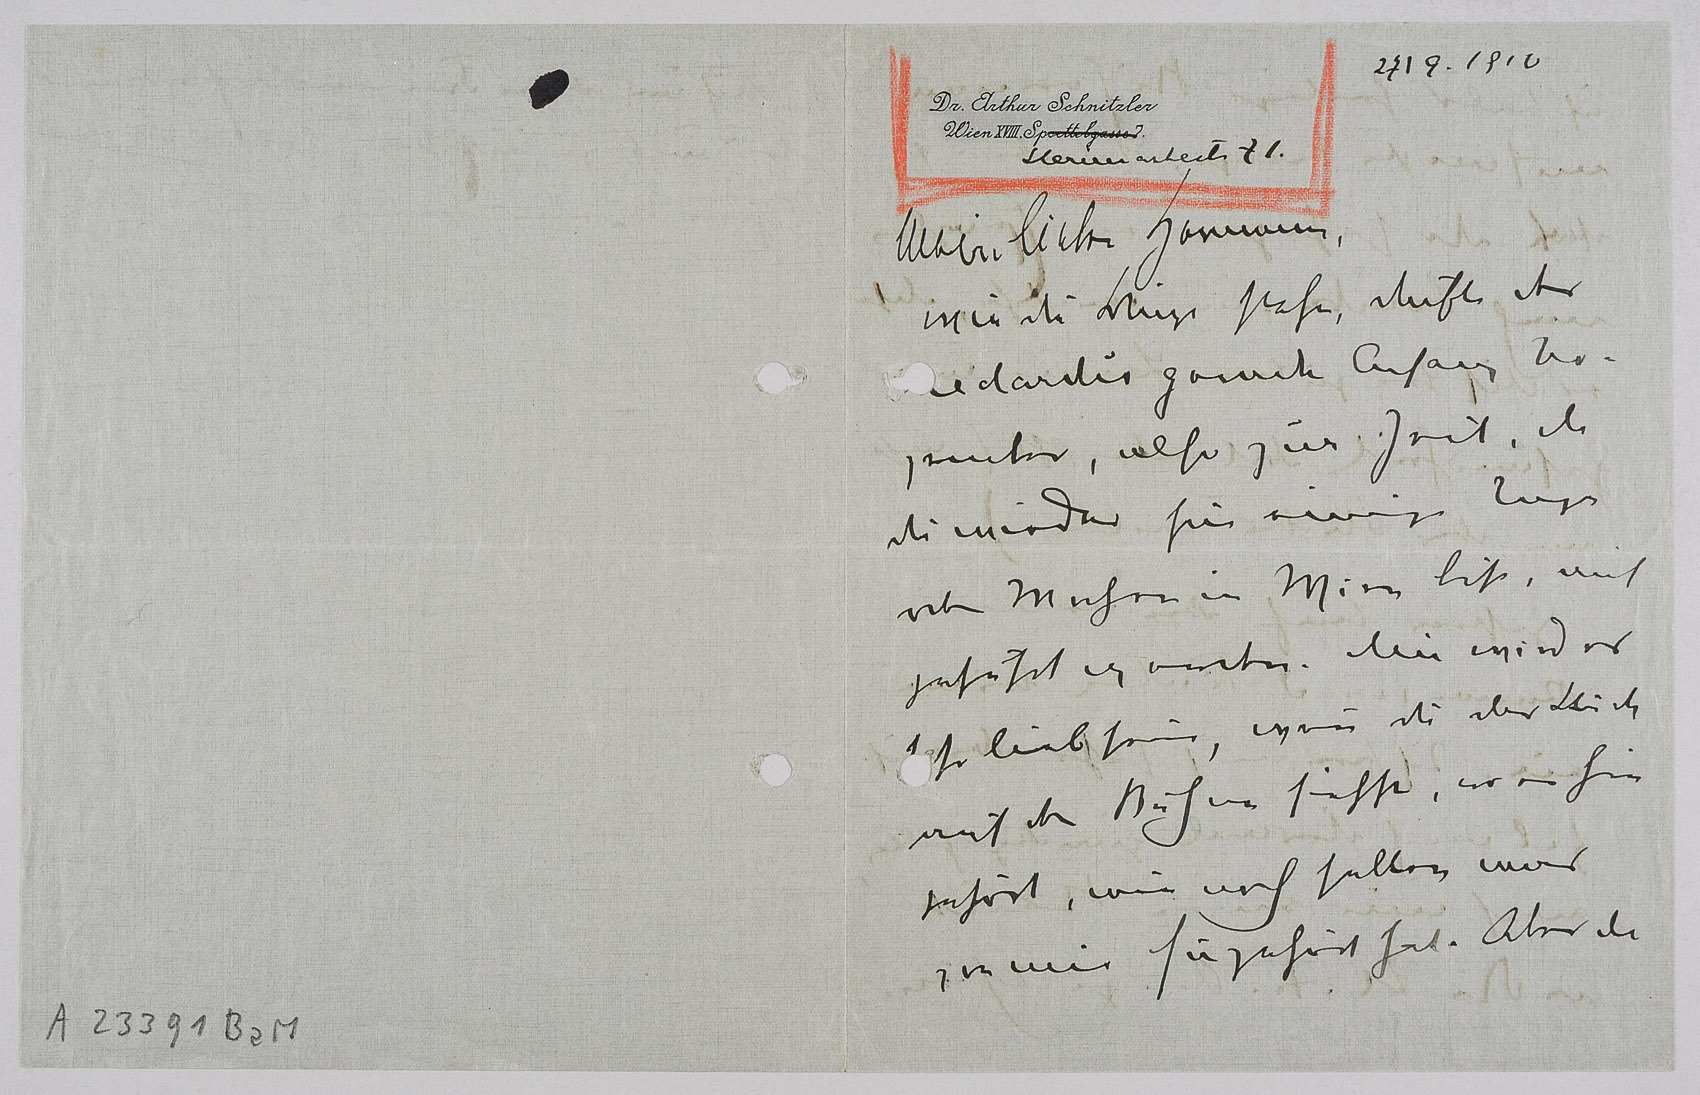 27/9. 1910
Dr. Arthur Schnitzler
Wien XVIII. Spoettelgasse 7.
Sternwartestr 71.
Mein lieber Hermann,
wie die Dinge stehn, dürfte der
Medardus gerade Anfang No-
vember, also zur Zeit, da
du wieder für einige Tage
den in Wien bist, auf
geführt werden. Mir wird es
sehr lieb sein, wenn du das Stück
auf der Bühne siehst, wo es hin
gehört, wie noch selten was
von mir hingehört hat. Aber da
A 23391 BaM